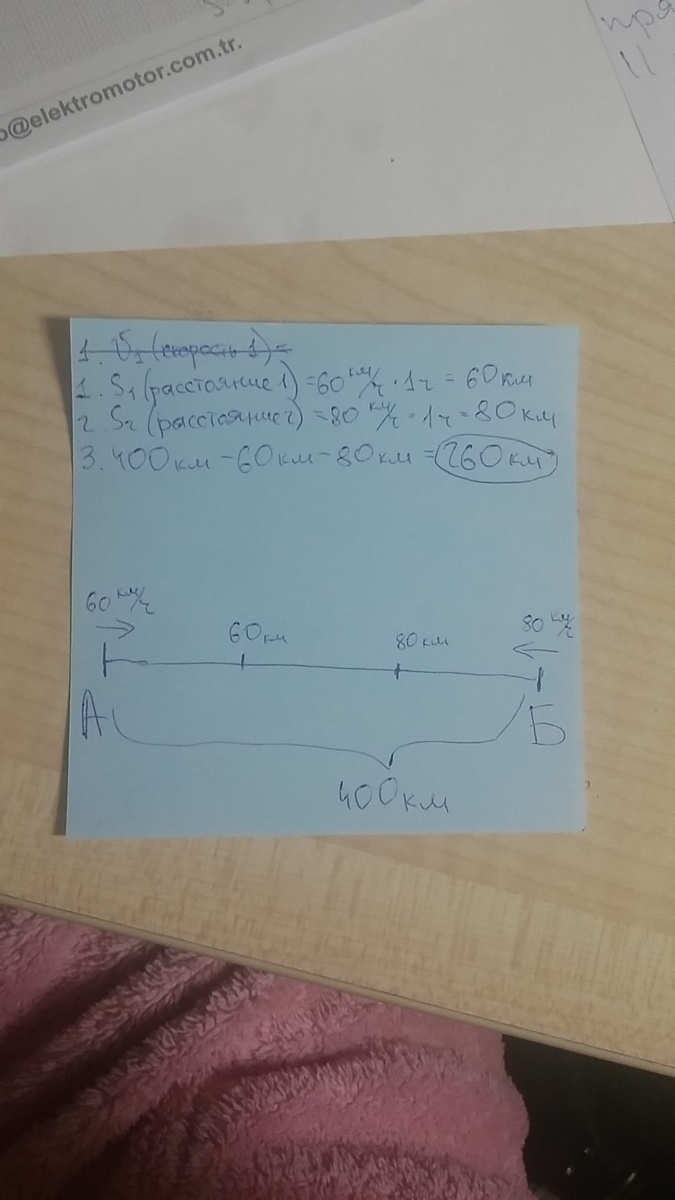 o@elektromotor.com.tr.
пря
11
1. V₁ (скорость 1) =
1. S₁ (расстояние 1) = 60 км/ч · 1ч = 60км
2. S₂ (расстояние 2) = 80 км/ч · 1ч = 80км
3. 400км - 60км - 80км = 260км
60 км/ч
80 км/ч
60км
80км
А
Б
400км